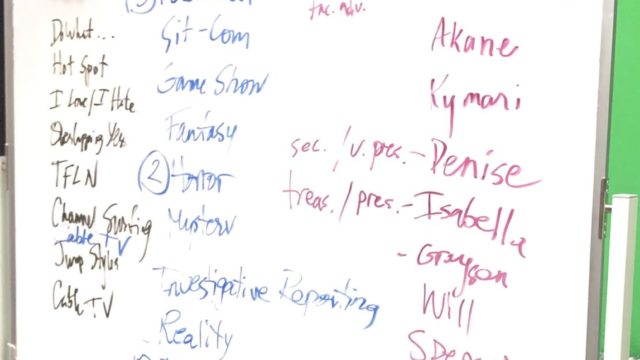 fac. adv.
DoWhat...
Hot Spot
I Love/I Hate
TFLN
Channel Surfing
able TV
Jump Styles
Cable TV
Sit-Com
Game Show
Fantasy
② Horror
Mystery
Investigative Reporting
Reality
Akane
Kymari
sec./v.pres.-Denise
treas./pres.-Isabella
- Grayson
Will